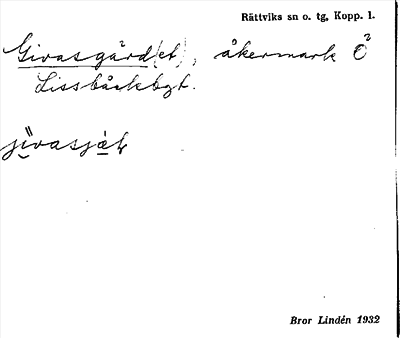 Rättviks sn o. tg, Kopp. l.
Givasgärd(et), åkermark Ö²
Lissbäckbgt.
jivasjäḷ
Bror Lindén 1932